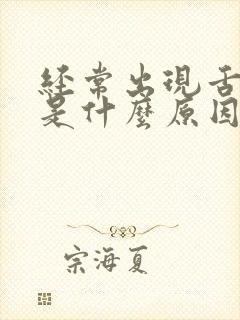 經常出現舌
是什麼原因
宗海夏